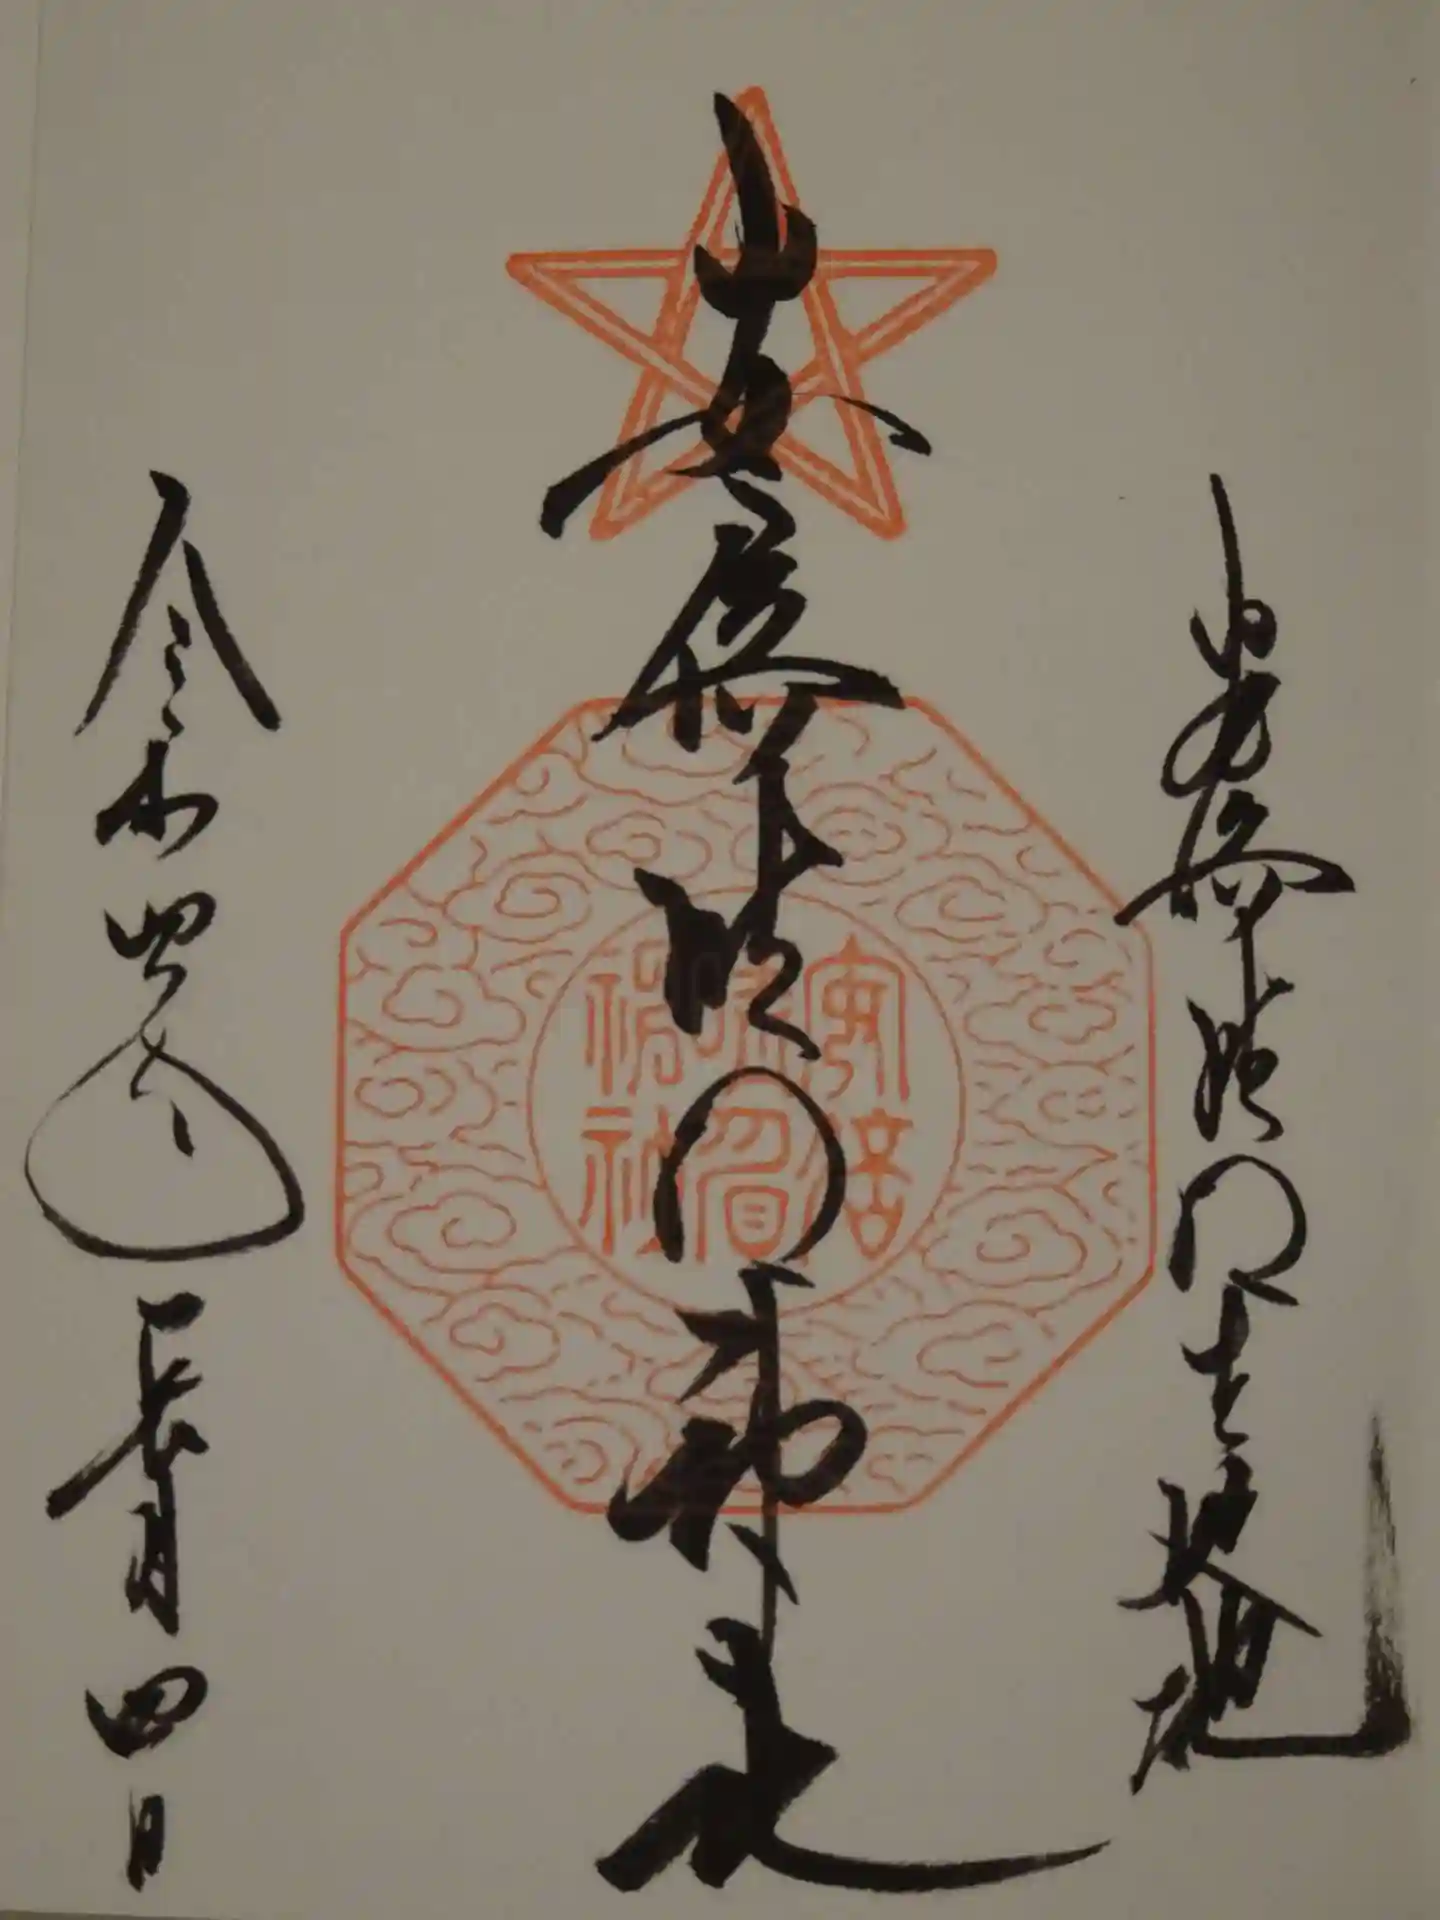 安倍晴明生誕地
安倍晴明神社
安倍
晴明
神社
令和四年長月四日